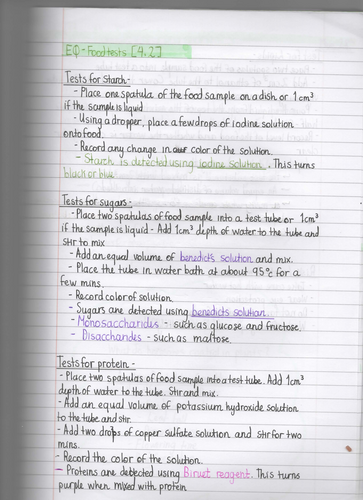 EQ - Food tests [4.2]
Tests for Starch -
- Place one spatula of the food sample on a dish or 1cm³
if the sample is liquid
- Using a dropper, place a few drops of iodine solution
onto food.
- Record any change in color of the solution.
- Starch is detected using iodine solution. This turns
black or blue
Tests for sugars -
- Place two spatulas of food sample into a test tube or 1cm³
if the sample is liquid - Add 1cm³ depth of water to the tube and
stir to mix
- Add an equal volume of benedict's solution and mix.
- Place the tube in water bath at about 95°c for a
few mins.
- Record color of solution
- Sugars are detected using benedicts solution.
- Monosaccharides - such as glucose and fructose.
- Disaccharides - such as maltose.
Tests for protein -
- Place two spatulas of food sample into a test tube. Add 1cm³
depth of water to the tube. Stir and mix.
- Add an equal volume of potassium hydroxide solution
to the tube and stir.
- Add two drops of copper sulfate solution and stir for two
mins.
- Record the color of the solution.
- Proteins are detected using Biruet reagent. This turns
purple when mixed with protein